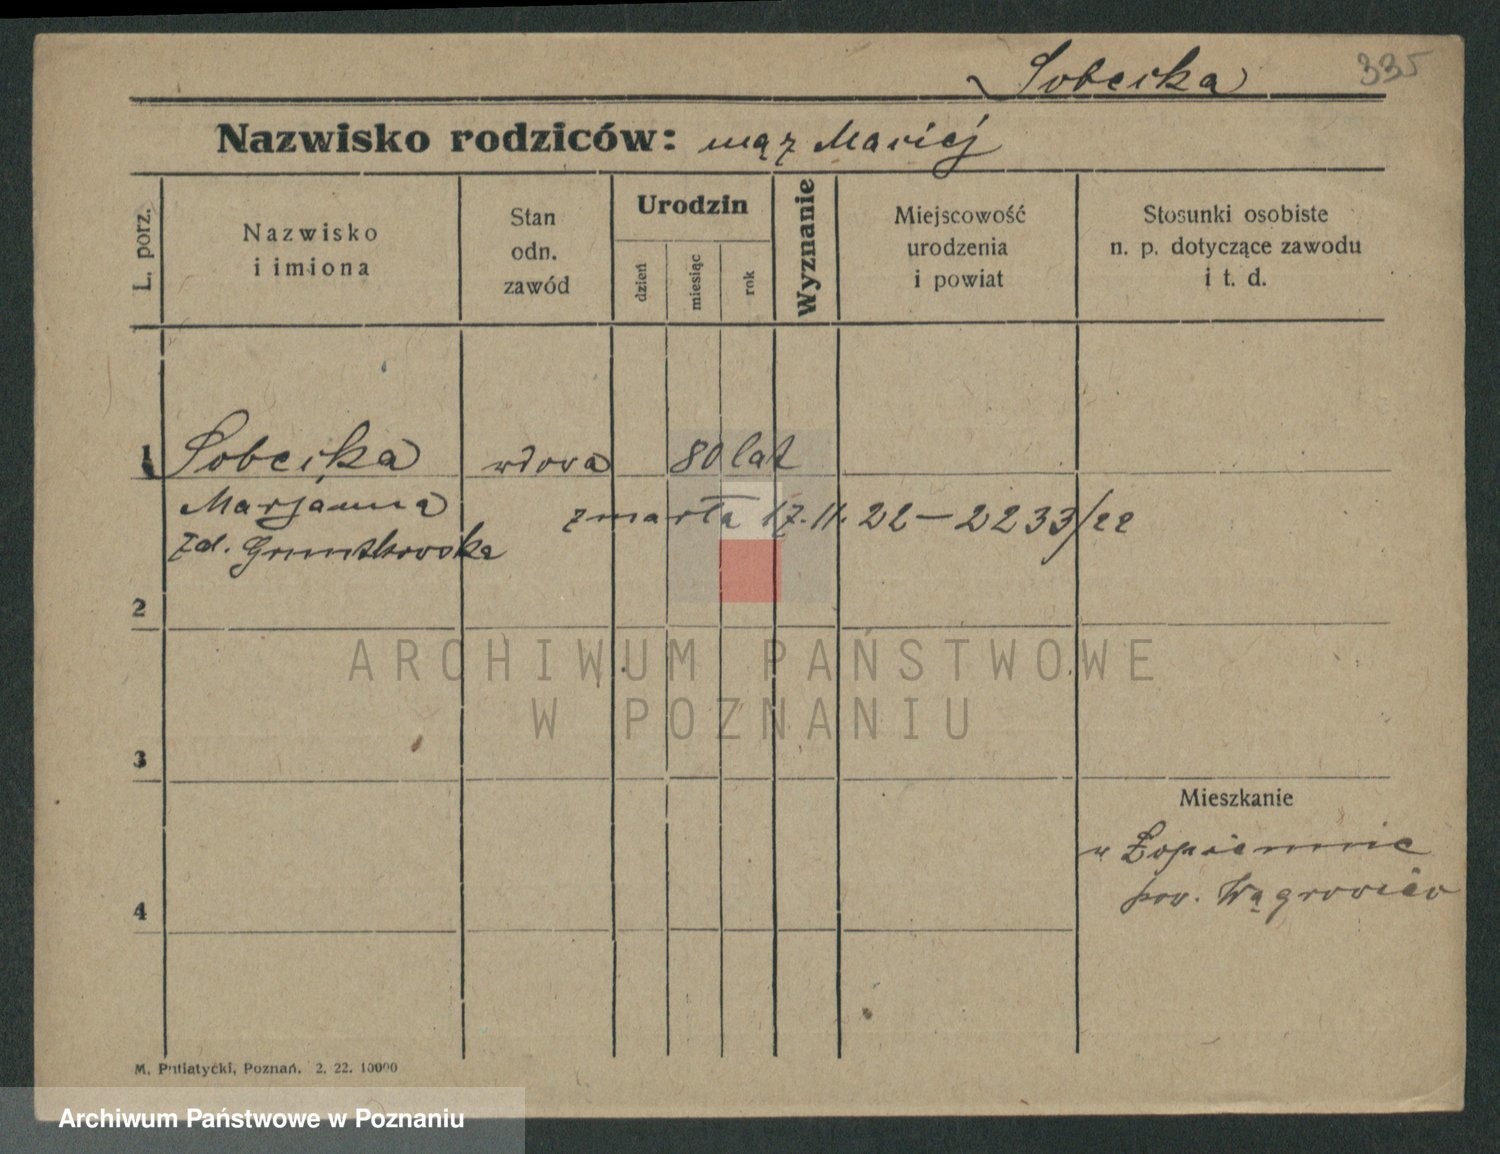 Sobecka
335
Nazwisko rodziców: mąż Maciej
L. porz.
Nazwisko
i imiona
Stan
odn.
zawód
Urodzin
dzień
miesiąc
rok
Wyznanie
Miejscowość
urodzenia
i powiat
Stosunki osobiste
n. p. dotyczące zawodu
i t. d.
1 Sobecka wdowa 80 lat
Marjanna
zmarła 17.11.22 – 2233/22
zd.
2
ARCHIWUM PAŃSTWOWE
W POZNANIU
3
Mieszkanie
w Łopiennie
pow. Wągrowiec
4
M. Putiatycki, Poznań. 2. 22. 10000
Archiwum Państwowe w Poznaniu